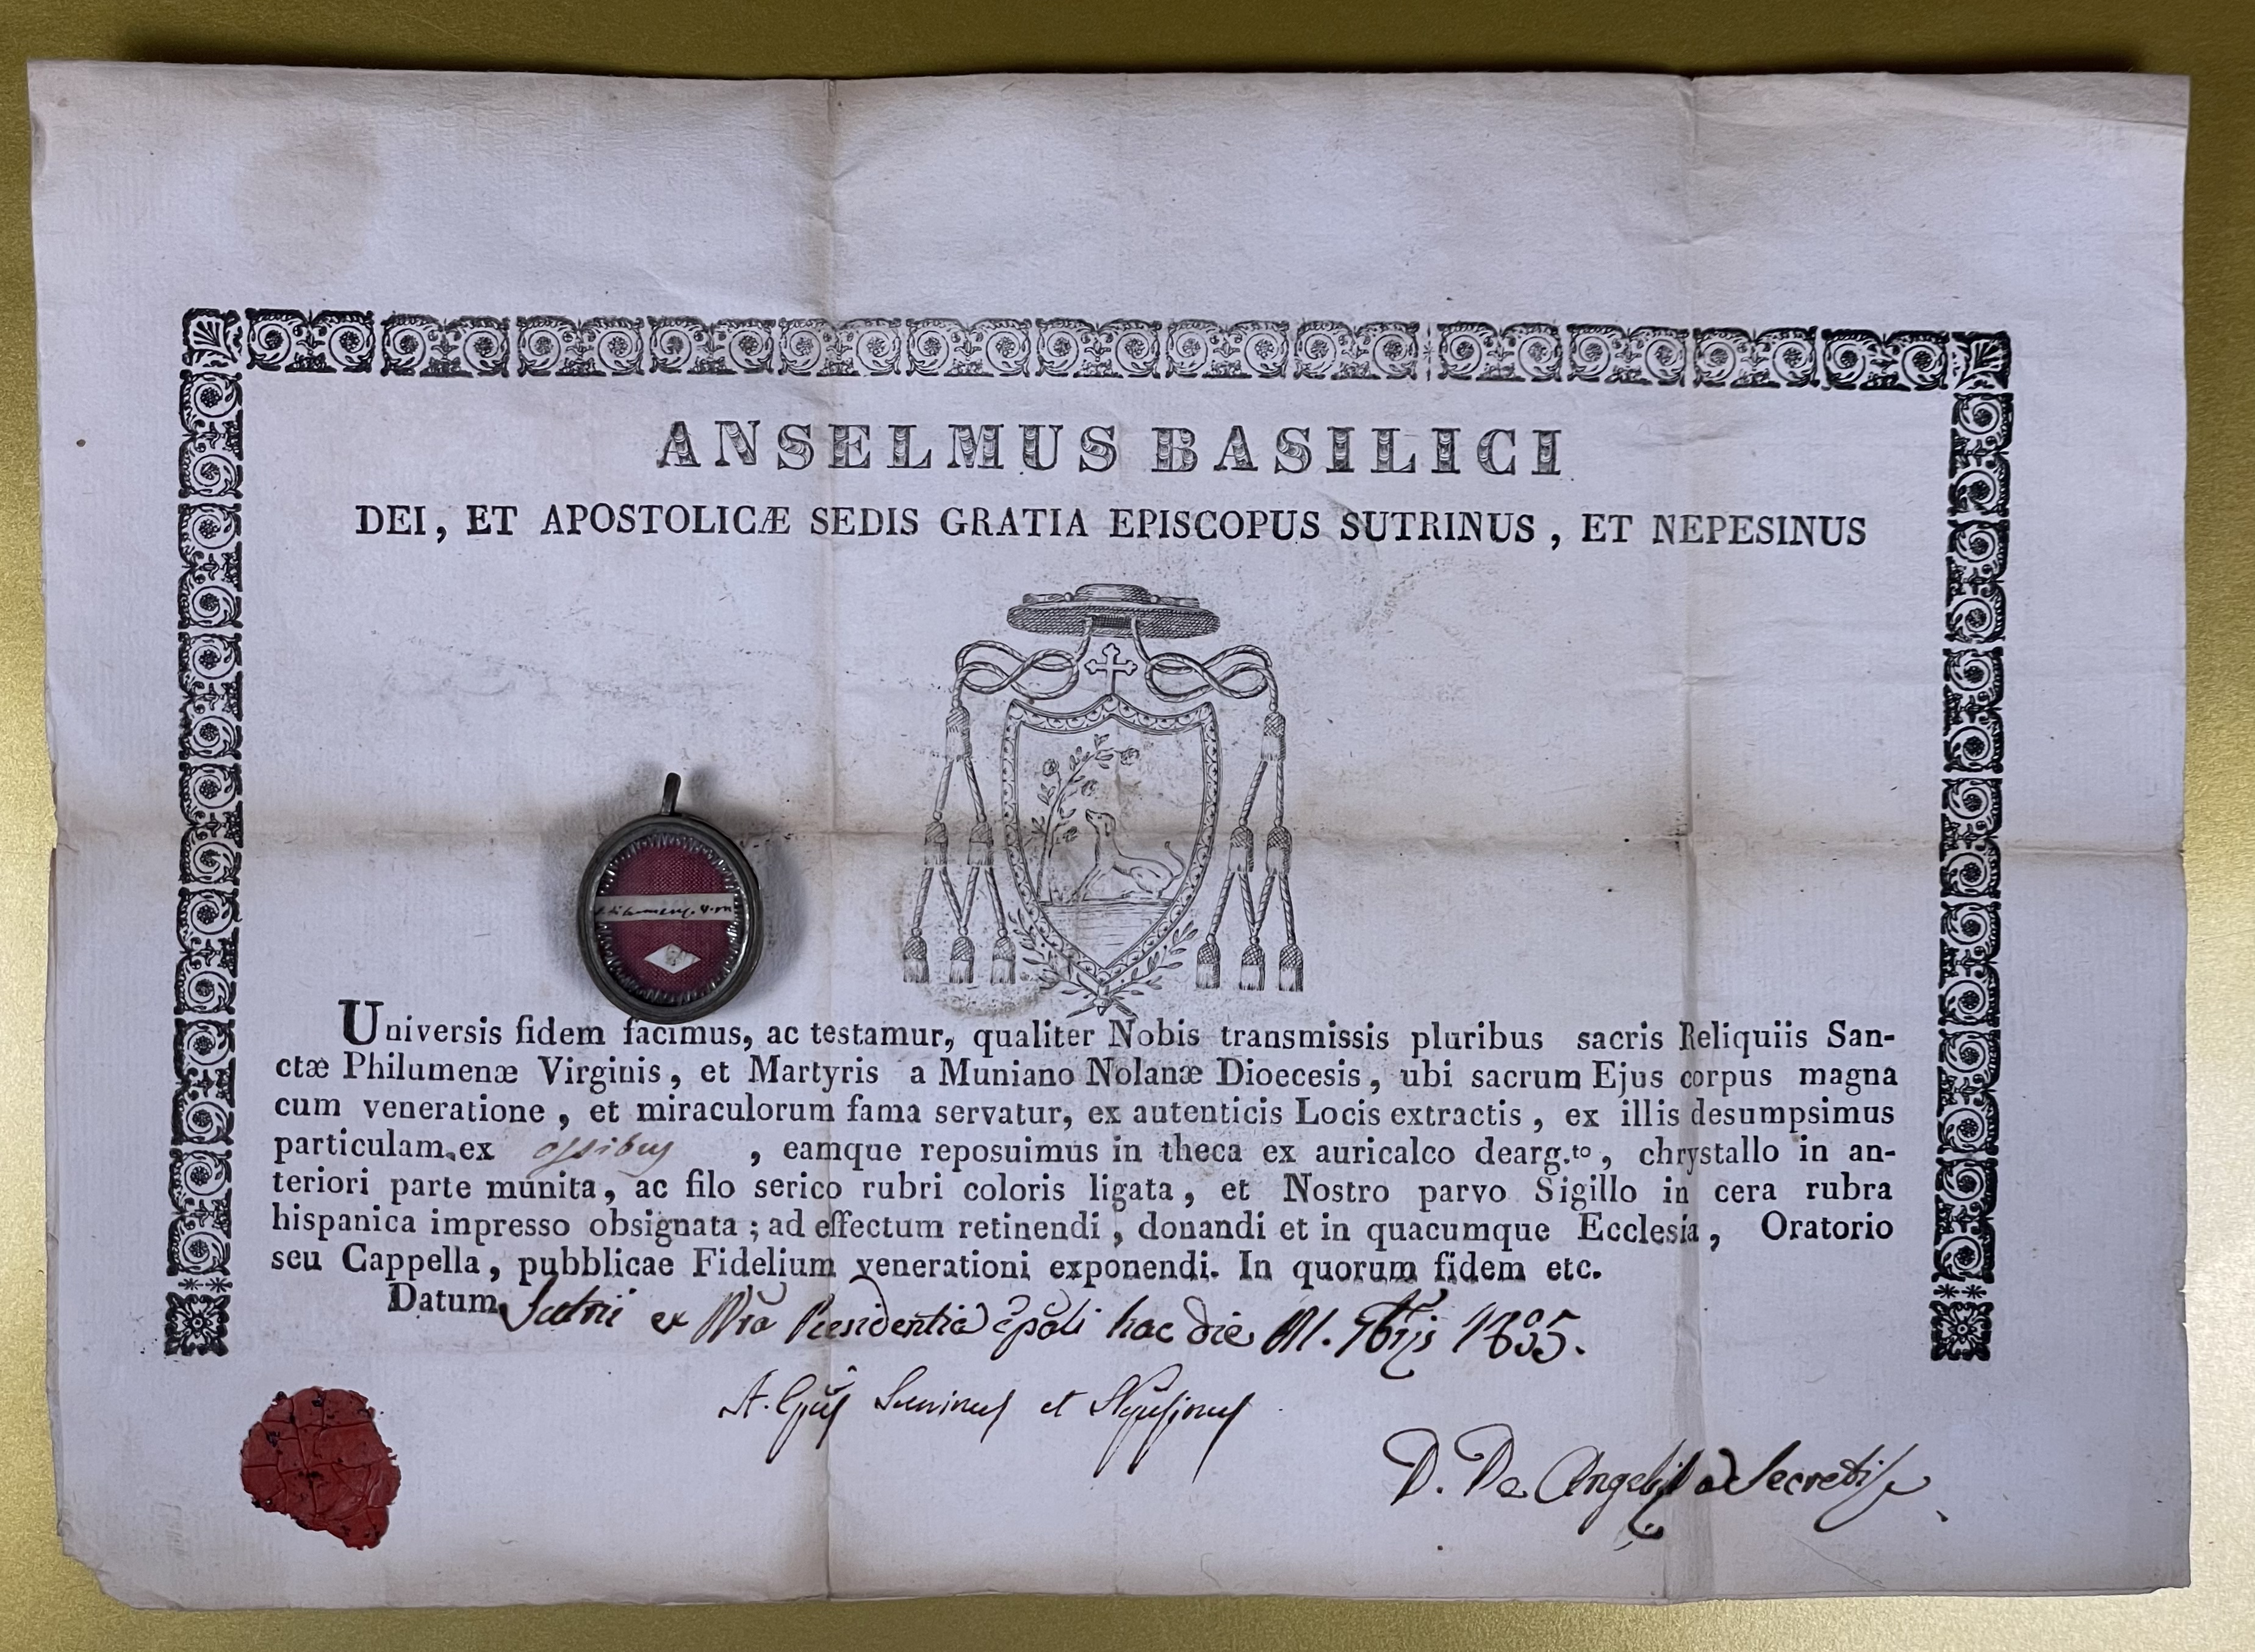 ANSELMUS BASILICI
DEI, ET APOSTOLICÆ SEDIS GRATIA EPISCOPUS SUTRINUS, ET NEPESINUS
Universis fidem facimus, ac testamur, qualiter Nobis transmissis pluribus sacris Reliquiis San-
ctæ Philumenæ Virginis, et Martyris a Muniano Nolanæ Dioecesis, ubi sacrum Ejus corpus magna
cum veneratione, et miraculorum fama servatur, ex autenticis Locis extractis, ex illis desumpsimus
particulam ex ossibus, eamque reposuimus in theca ex auricalco dearg.to, chrystallo in an-
teriori parte munita, ac filo serico rubri coloris ligata, et Nostro parvo Sigillo in cera rubra
hispanica impresso obsignata; ad effectum retinendi, donandi et in quacumque Ecclesia, Oratorio
seu Cappella, pubblicae Fidelium venerationi exponendi. In quorum fidem etc.
Datum Sutrii ex Nra Residentia Epali hac die 1835.
A. Epus Sutrinus et Nepesinus
D. De Angelis a Secretis